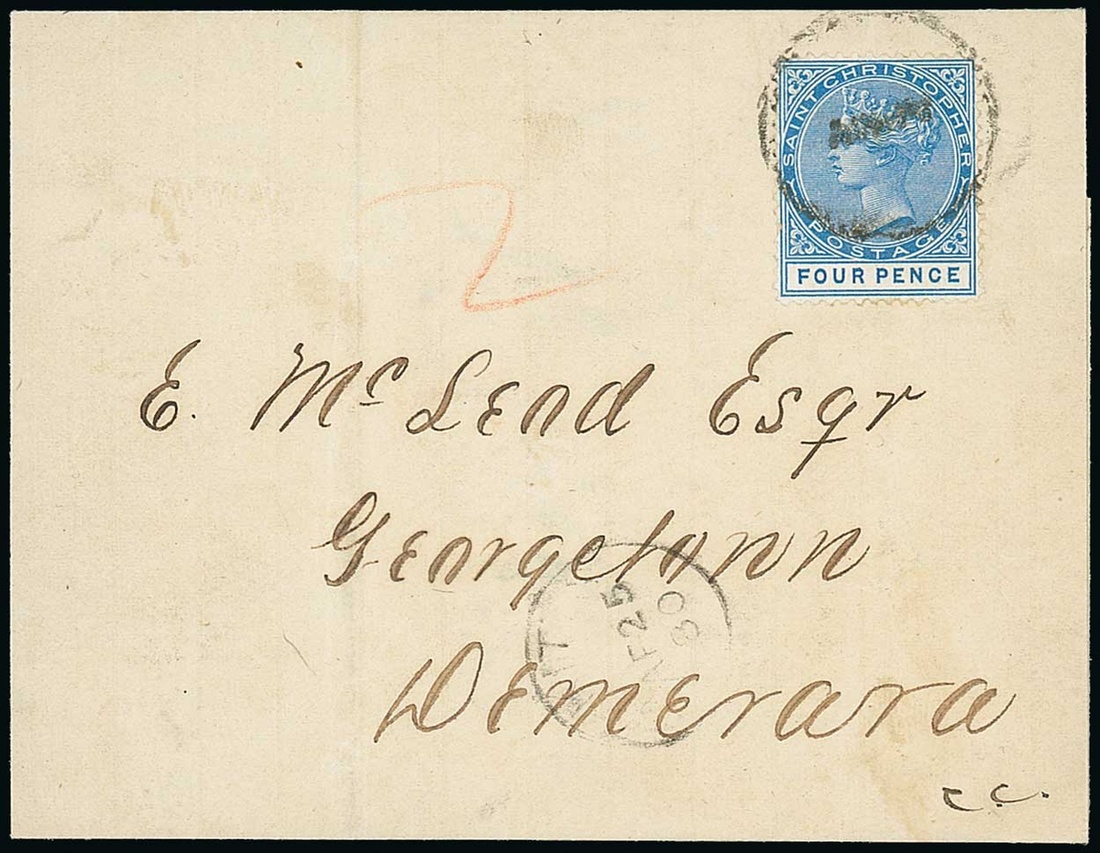 SAINT CHRISTOPHER
POSTAGE
FOUR PENCE
2
E. Mc Leod Esqr
Georgetown
Demerara
AP 25
80
c.c.